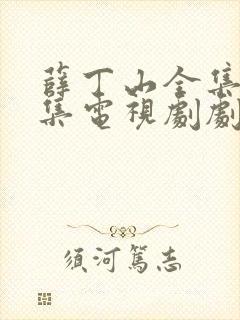 薛丁山全集
集電視劇劇
須河篤志